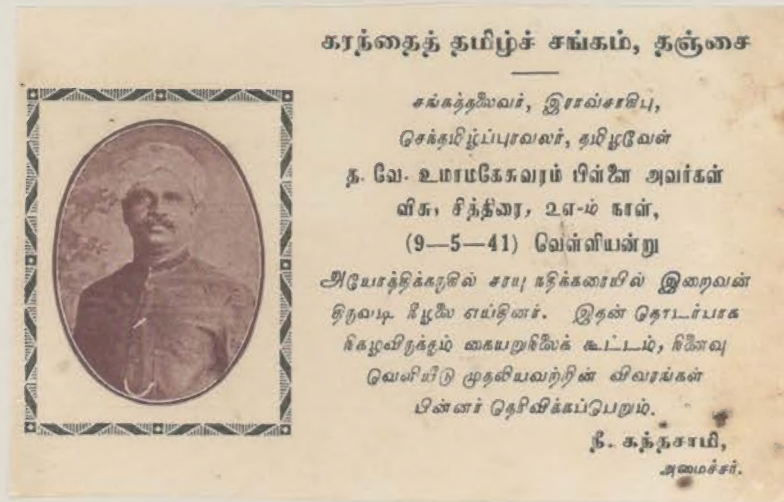 கரந்தைத் தமிழ்ச் சங்கம், தஞ்சை
சங்கத்தலைவர், இராவ்சாகிபு,
செந்தமிழ்ப்புரவலர், தமிழவேள்
த. வே. உமாமகேசுவரம் பிள்ளை அவர்கள்
விசு, சித்திரை, ௨௭-ம் நாள்,
(9—5—41) வெள்ளியன்று
அயோத்திக்கருகில் சரயு நதிக்கரையில் இறைவன்
திருவடி நீழலை எய்தினர். இதன் தொடர்பாக
நிகழவிருக்கும் கையறுநிலைக் கூட்டம், நினைவு
வெளியீடு முதலியவற்றின் விவரங்கள்
பின்னர் தெரிவிக்கப்பெறும்.
நீ. கந்தசாமி,
அமைச்சர்.